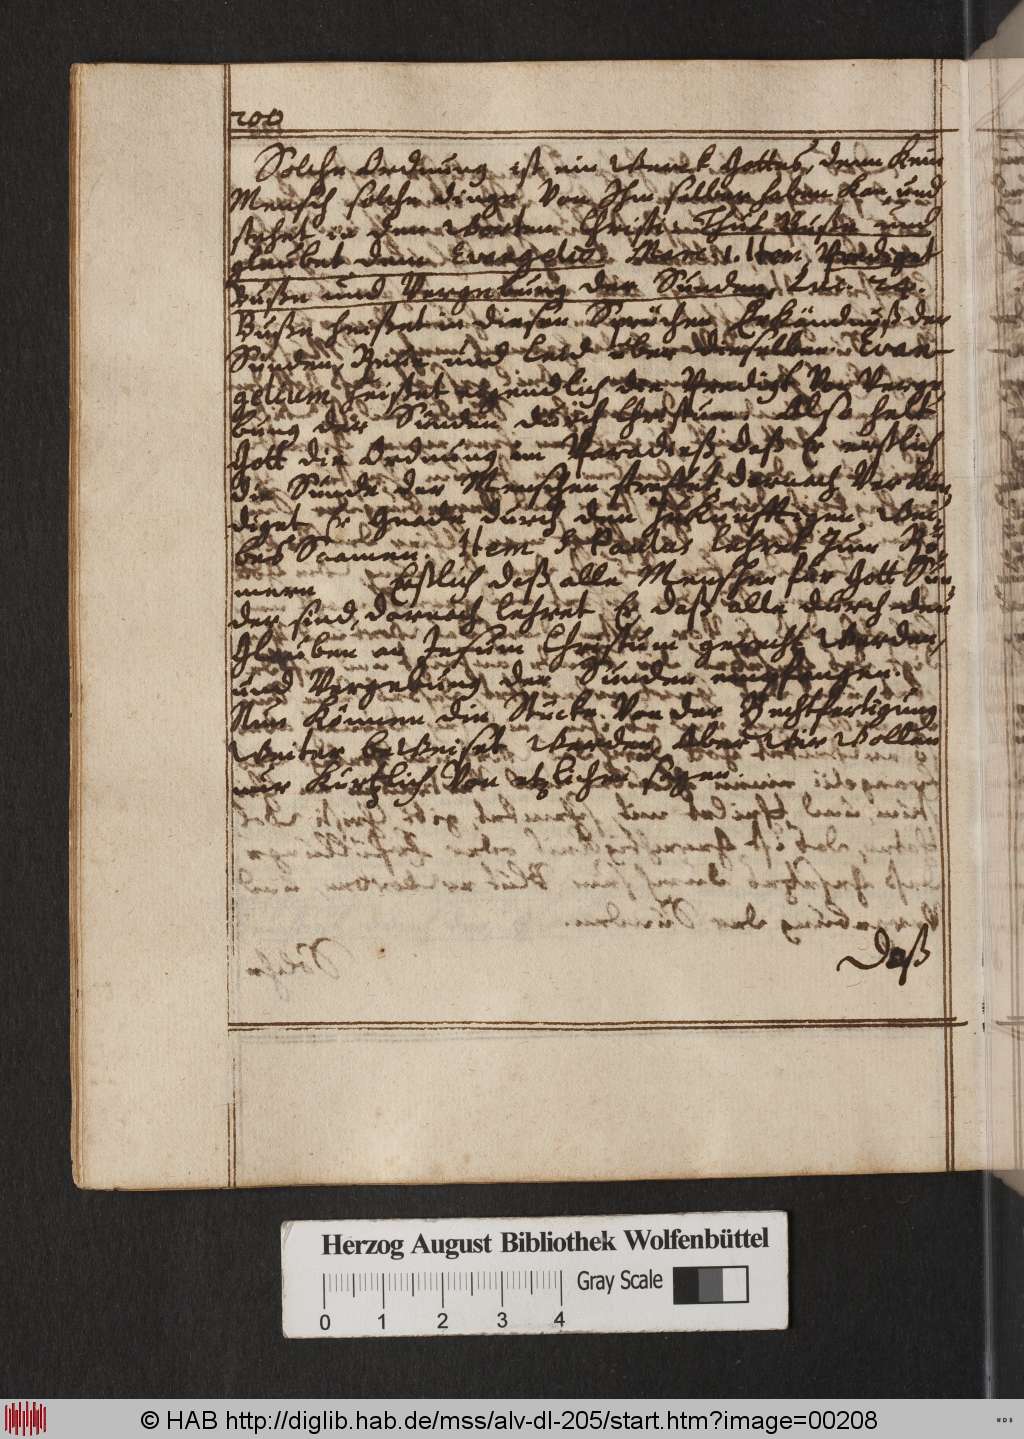 200
Solche Ordnung ist ein Werck Gottes, denn Kein
Mensch solche dinge Von Ihm selber haben Kan, und
stehet in den Worten Christi Thut Buße und
gleubet dem Evangelio. Marc. 1. Item, Prediget
Buße und Vergebung der Sunden, Luc. 24.
Buße heißet in diesen Sprüchen Erkändnuß der
Sünden, Reue und Leid über dieselben. Evan-
gelium heistet eigendlich die Predigt Von Verge
bung der Sunden durch Christum. Also helt
Gott die Ordnung im Paradieß daß Er erstlich
die Sünde der Menschen straffet, darnach Verkün,
diget Er Gnade durch den zukunfftigen Wei,
bes Saamen. Item S. Paulus lehret Zun Rö,
mern Erstlich daß alle Menschen für Gott Sün
der sind, darnach lehret Er daß alle durch den
Glauben an Jesum Christum gerecht Werden,
und Vergebung der Sünden empfangen.
Nun Können die Stücke Von der Rechtfertigung
Weiter beWeiset Werden, Aber Wir Wollen
nur Kürtzlich Von etzlichen sagen.
Daß
Herzog August Bibliothek Wolfenbüttel
Gray Scale
0 1 2 3 4
© HAB http://diglib.hab.de/mss/alv-dl-205/start.htm?image=00208